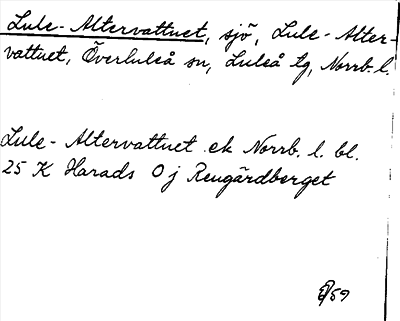 Lule-Altervattnet, sjö, Lule-Alter-
vattnet, Överluleå sn, Luleå tg, Norrb. l.
Lule-Altervattnet ek Norrb. l. bl.
25 K Harads 0 j Rengärdberget
59